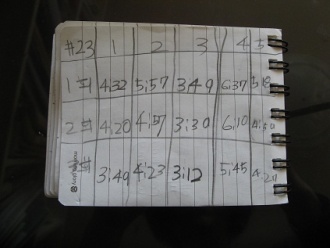 #23 1 2 3 4 5
1st 4:32 5:57 3:49 6:37 5:18
2st 4:20 4:57 3:30 6:10 4:30
3:49 4:23 3:12 5:45 4:21